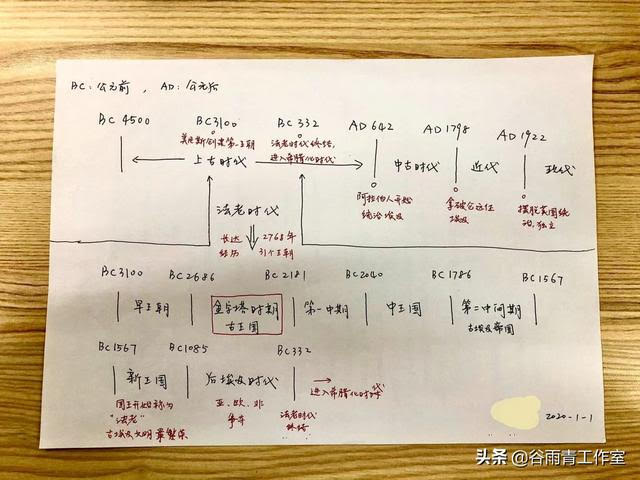 BC：公元前 ， AD：公元后
BC 4500 BC3100 BC 332 AD 642 AD 1798 AD 1922
美尼斯创建第一王朝 法老时代终结，
进入希腊化时代
上古时代 中古时代 近代 现代
阿拉伯人开始
统治埃及
拿破仑远征
埃及
摆脱英国统
治，独立
法老时代
长达 2768年
经历 31个王朝
BC3100 BC2686 BC 2181 BC2040 BC1786 BC1567
早王朝 金字塔时期 第一中期 中王国 第二中间期
古王国 古埃及帝国
BC1567 BC1085 BC 332
新王国 后埃及时代 进入希腊化时代
国王开始称为
“法老”
古埃及文明最繁荣
亚、欧、非
争夺
法老时代
终结
2020-1-1
头条 @谷雨青工作室